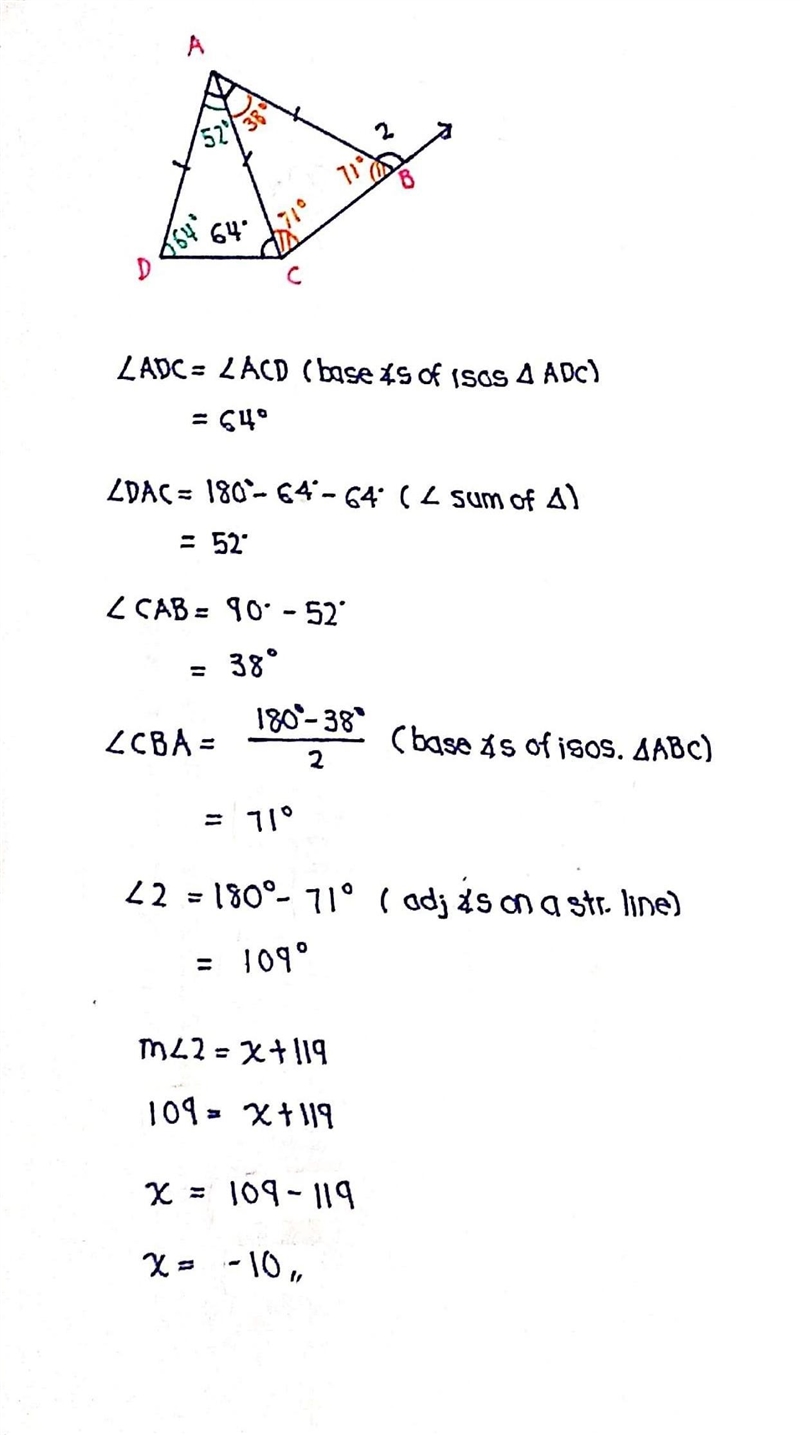 A
52° 38°
2
71° B
64° 64° 71°
D C
∠ADC = ∠ACD (base ∡s of isos △ ADC)
= 64°
∠DAC = 180° - 64° - 64° (∠ sum of △)
= 52°
∠CAB = 90° - 52°
= 38°
∠CBA = \frac{180° - 38°}{2} (base ∡s of isos. △ABC)
= 71°
∠2 = 180° - 71° (adj ∡s on a str. line)
= 109°
m∠2 = x + 119
109 = x + 119
x = 109 - 119
x = -10 〃